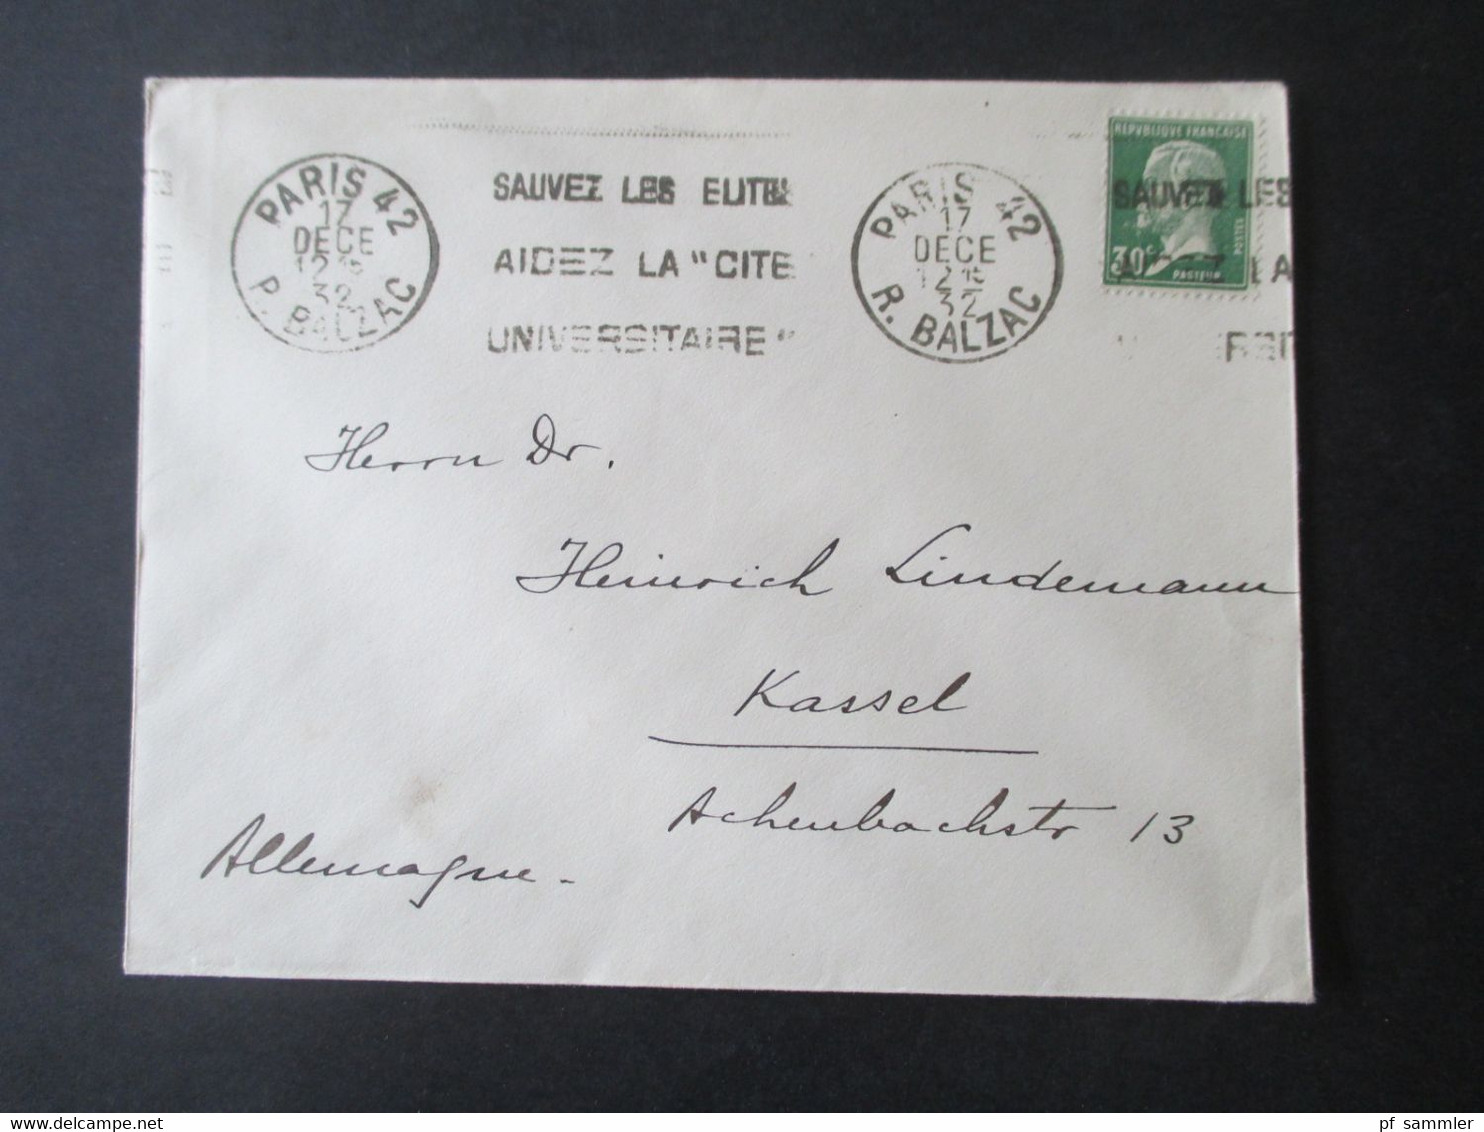 PARIS 42
17
DECE
12 15
32
P. BALZAC
SAUVEZ LES ELITES
AIDEZ LA "CITE
UNIVERSITAIRE"
PARIS 42
17
DECE
12 15
32
R. BALZAC
REPVBLIQUE FRANÇAISE
30c
POSTES
PASTEUR
SAUVEZ LES
LA
Herrn Dr.
Heinrich Lindemann
Kassel
Achenbachstr 13
Allemagne.
pf_sammler